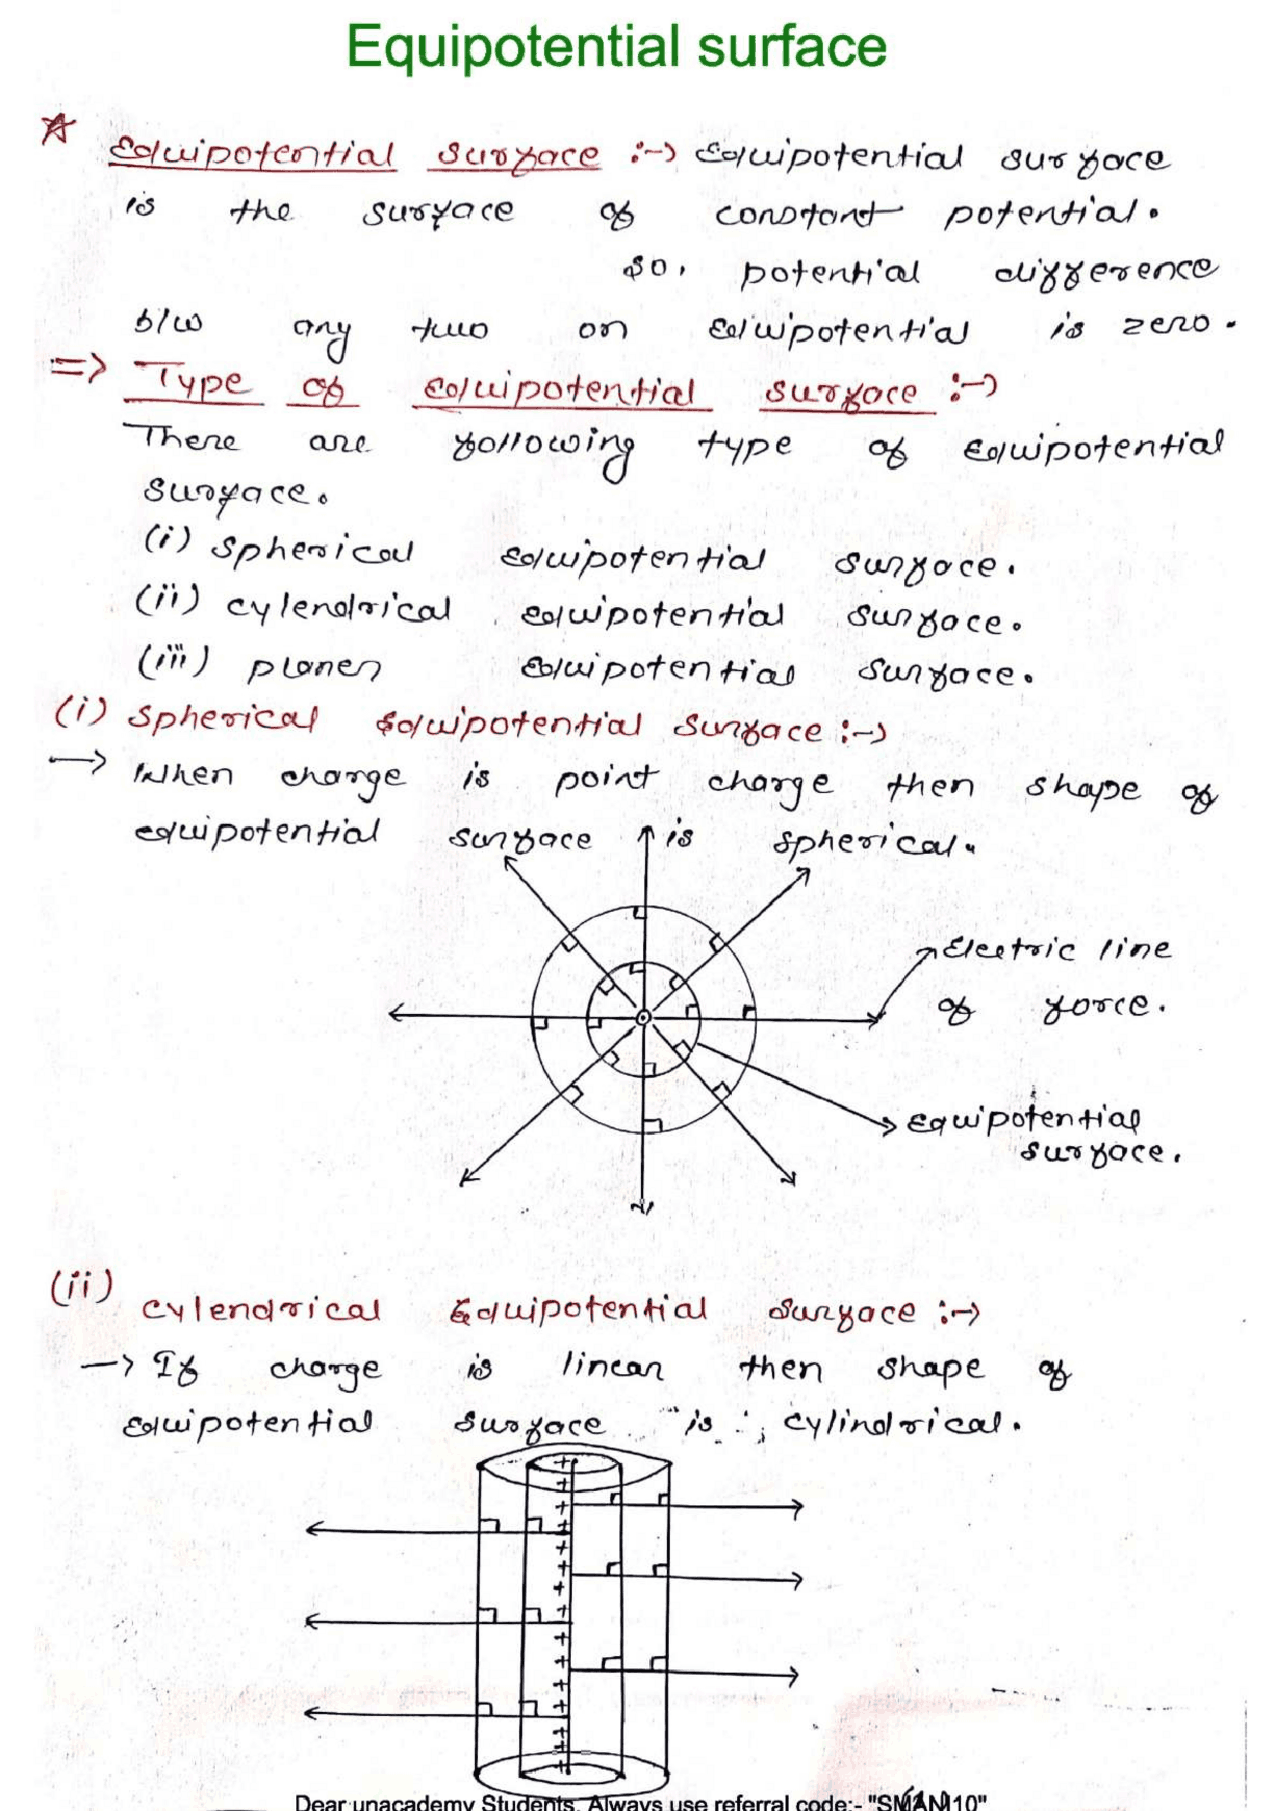 Equipotential surface
Equipotential surface :→ Equipotential surface
is the surface of constant potential.
So, potential difference
b/w any two on equipotential is zero.
=> Type of equipotential surface :→
There are following type of equipotential
surface.
(i) spherical equipotential surface.
(ii) cylendrical equipotential surface.
(iii) planer equipotential surface.
(i) Spherical Equipotential surface :→
→ When charge is point charge then shape of
equipotential surface is spherical.
Electric line
of force.
Equipotential
surface.
(ii) cylendrical Equipotential surface :→
→ If charge is linear then shape of
equipotential surface is cylindrical.
Dear unacademy Students, Always use referral code:- "SMAN10"